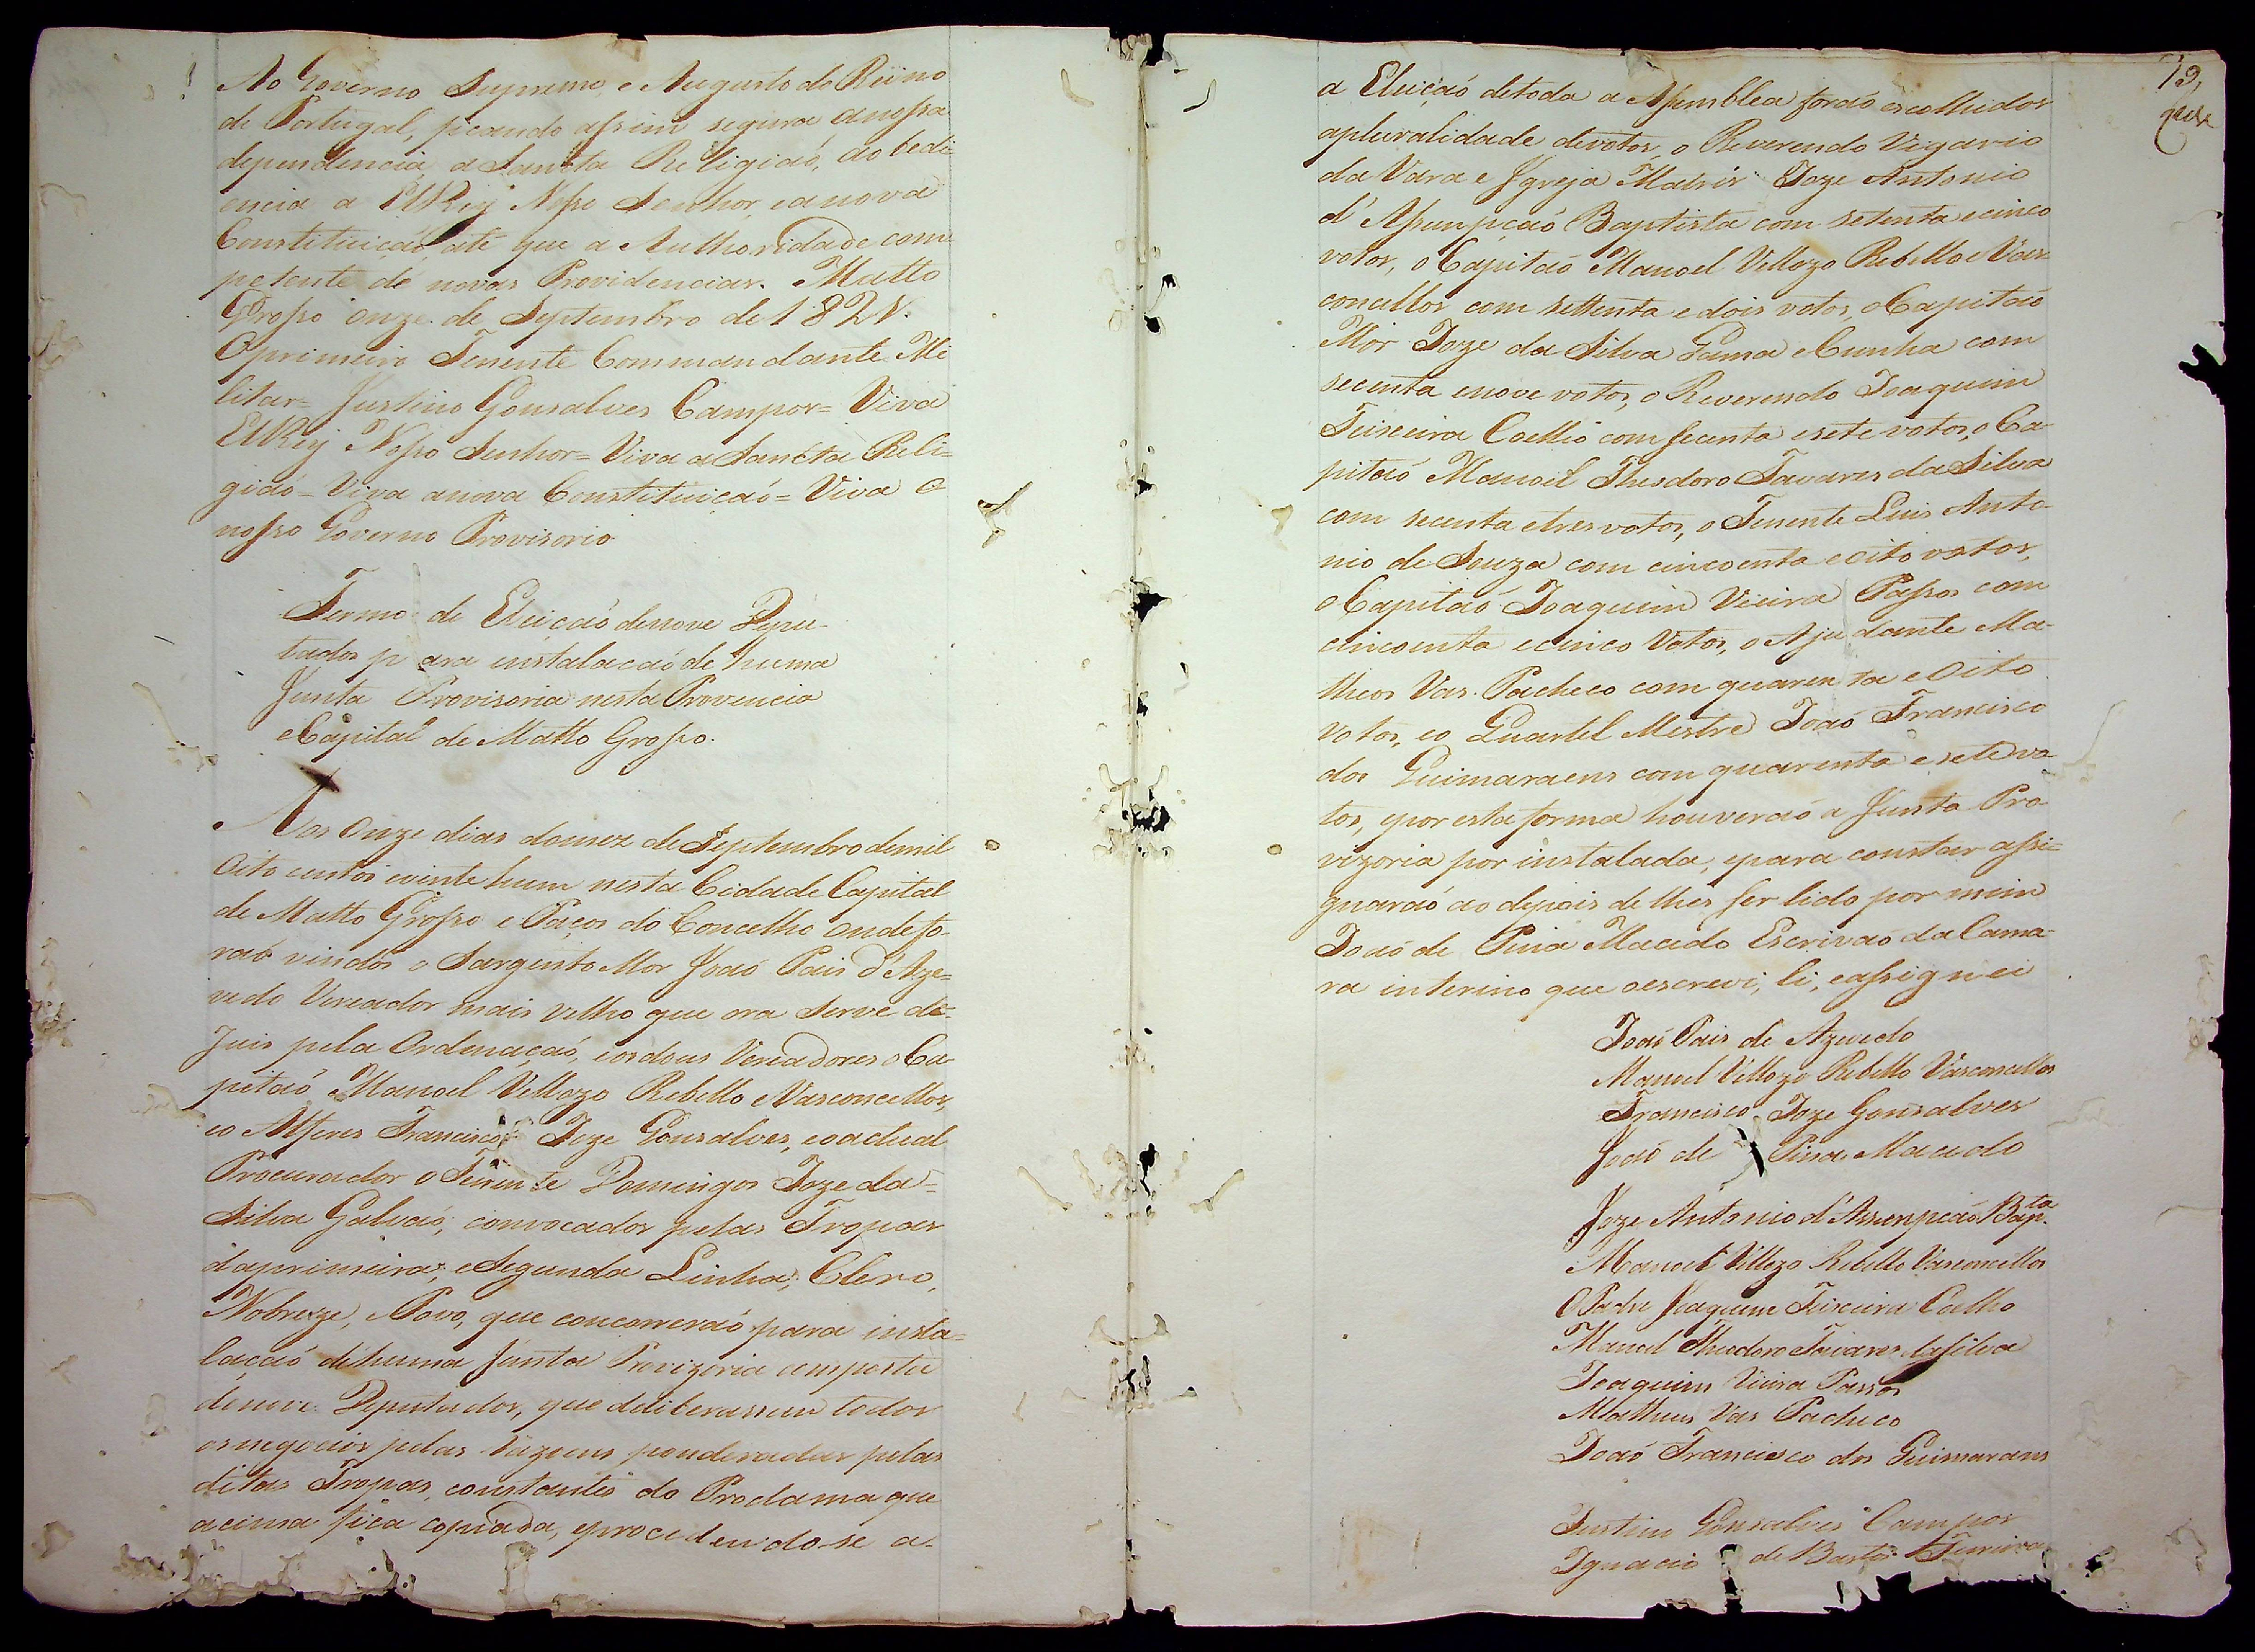 Ao Governo Supremo, e Augusto do Reino
de Portugal, ficando assim segura anossa
dependencia, a Sancta Religiaó, ao bedi
encia a ElRey Nosso Senhor, eanova
Constituiçaó, até que a Authoridade com
petente dé novas Providencias. Matto
Grosso onze de Septembro de 1821.
Oprimeiro Tenente Commandante Mi
litar= Justino Gonsalves Campos= Viva
ElRey Nosso Senhor= Viva a Sancta Reli=
giaó= Viva anova Constituiçaó= Viva o
nosso Governo Provisorio
Termo de Eleiçaó denove Depu-
tados p ara instalacaó de huma
Junta Provisoria nesta Provencia
eCapital de Matto Grosso.
Aos Onze dias domez de Septembro demil
Oito centos evinte hum nesta Cidade Capital
de Matto Grosso e Paços do Concelho onde fo-
raó vindos o Sargento Mor Joaó Pais d'Aze=
vedo Vereador mais velho que ora serve de=
Juis pela Ordenaçaó, eosdous Vereadores oCa
pitaó Manoel Vellozo Rebello eVasconcellos,
eo Alferes Francisco Joze Gonsalves, eoactual
Procurador o Tenente Domingos Joze da=
Silva Galvaó, convocados pelas Tropas
daprimeira, eSegunda Linha, Clero,
Nobreze, ePovo, que concorreraó para insta=
laçaó dehuma Junta Provizoria composta
denove Deputados, que deliberassem todos
osnegocios pelas razoens ponderadas pelas
ditas Tropas, constantes do Proclama que
acima fica copiada, eprocedendo-se a-
73,
a Eleiçaó detoda a Assemblea foraó escolhidos
apluralidade devotos, o Reverendo Vigario
da Vara e Igreja Matris Joze Antonio
d'Assumpçaó Baptista com setenta ecinco
votos, o Capitaó Manoel Vellozo Rebello eVas=
concellos com settenta edois votos, oCapitaó
Mór Joze da Silva Gama eCunha com
secenta enove votos, o Reverendo Joaquim
Teixeira Coelho com secenta esete votos, o Ca-
pitaó Manoel Theodoro Tavares da Silva
com secenta etres votos, o Tenente Luis Anto-
nio de Souza com cincoenta eoito votos,
o Capitaó Joaquim Vieira Passos com
cincoenta ecinco Votos, o Ajudante Ma-
theos Vas Pacheco com quarenta eOito
Votos, eo Quartel Mestre Joaó Francisco
dos Guimaraens com quarenta esete vo-
tos, eporesta forma houveraó a Junta Pro
vizoria por instalada, epara constar assi=
gnaraó ao depois de lhes ser lido por mim
Joaó de Pina Macedo Escrivaó da Cama-
ra interino que oescrevi, li, eassignei
Joaó Pais de Azevedo
Manoel Vellozo Rebello Vasconcellos
Francisco Joze Gonsalves
Joaó de Pina Macedo
Joze Antonio d'Assumpçaó Bap.ta
Manoel Vellozo Rebello Vasconcellos
O Padre Joaquim Teixeira Coelho
Manoel Theodoro Tavares daSilva
Joaquim Vieira Passos
Matheus Vas Pacheco
Joaó Francisco dos Guimarans
Justino Gonsalves Campos
Ignacio de